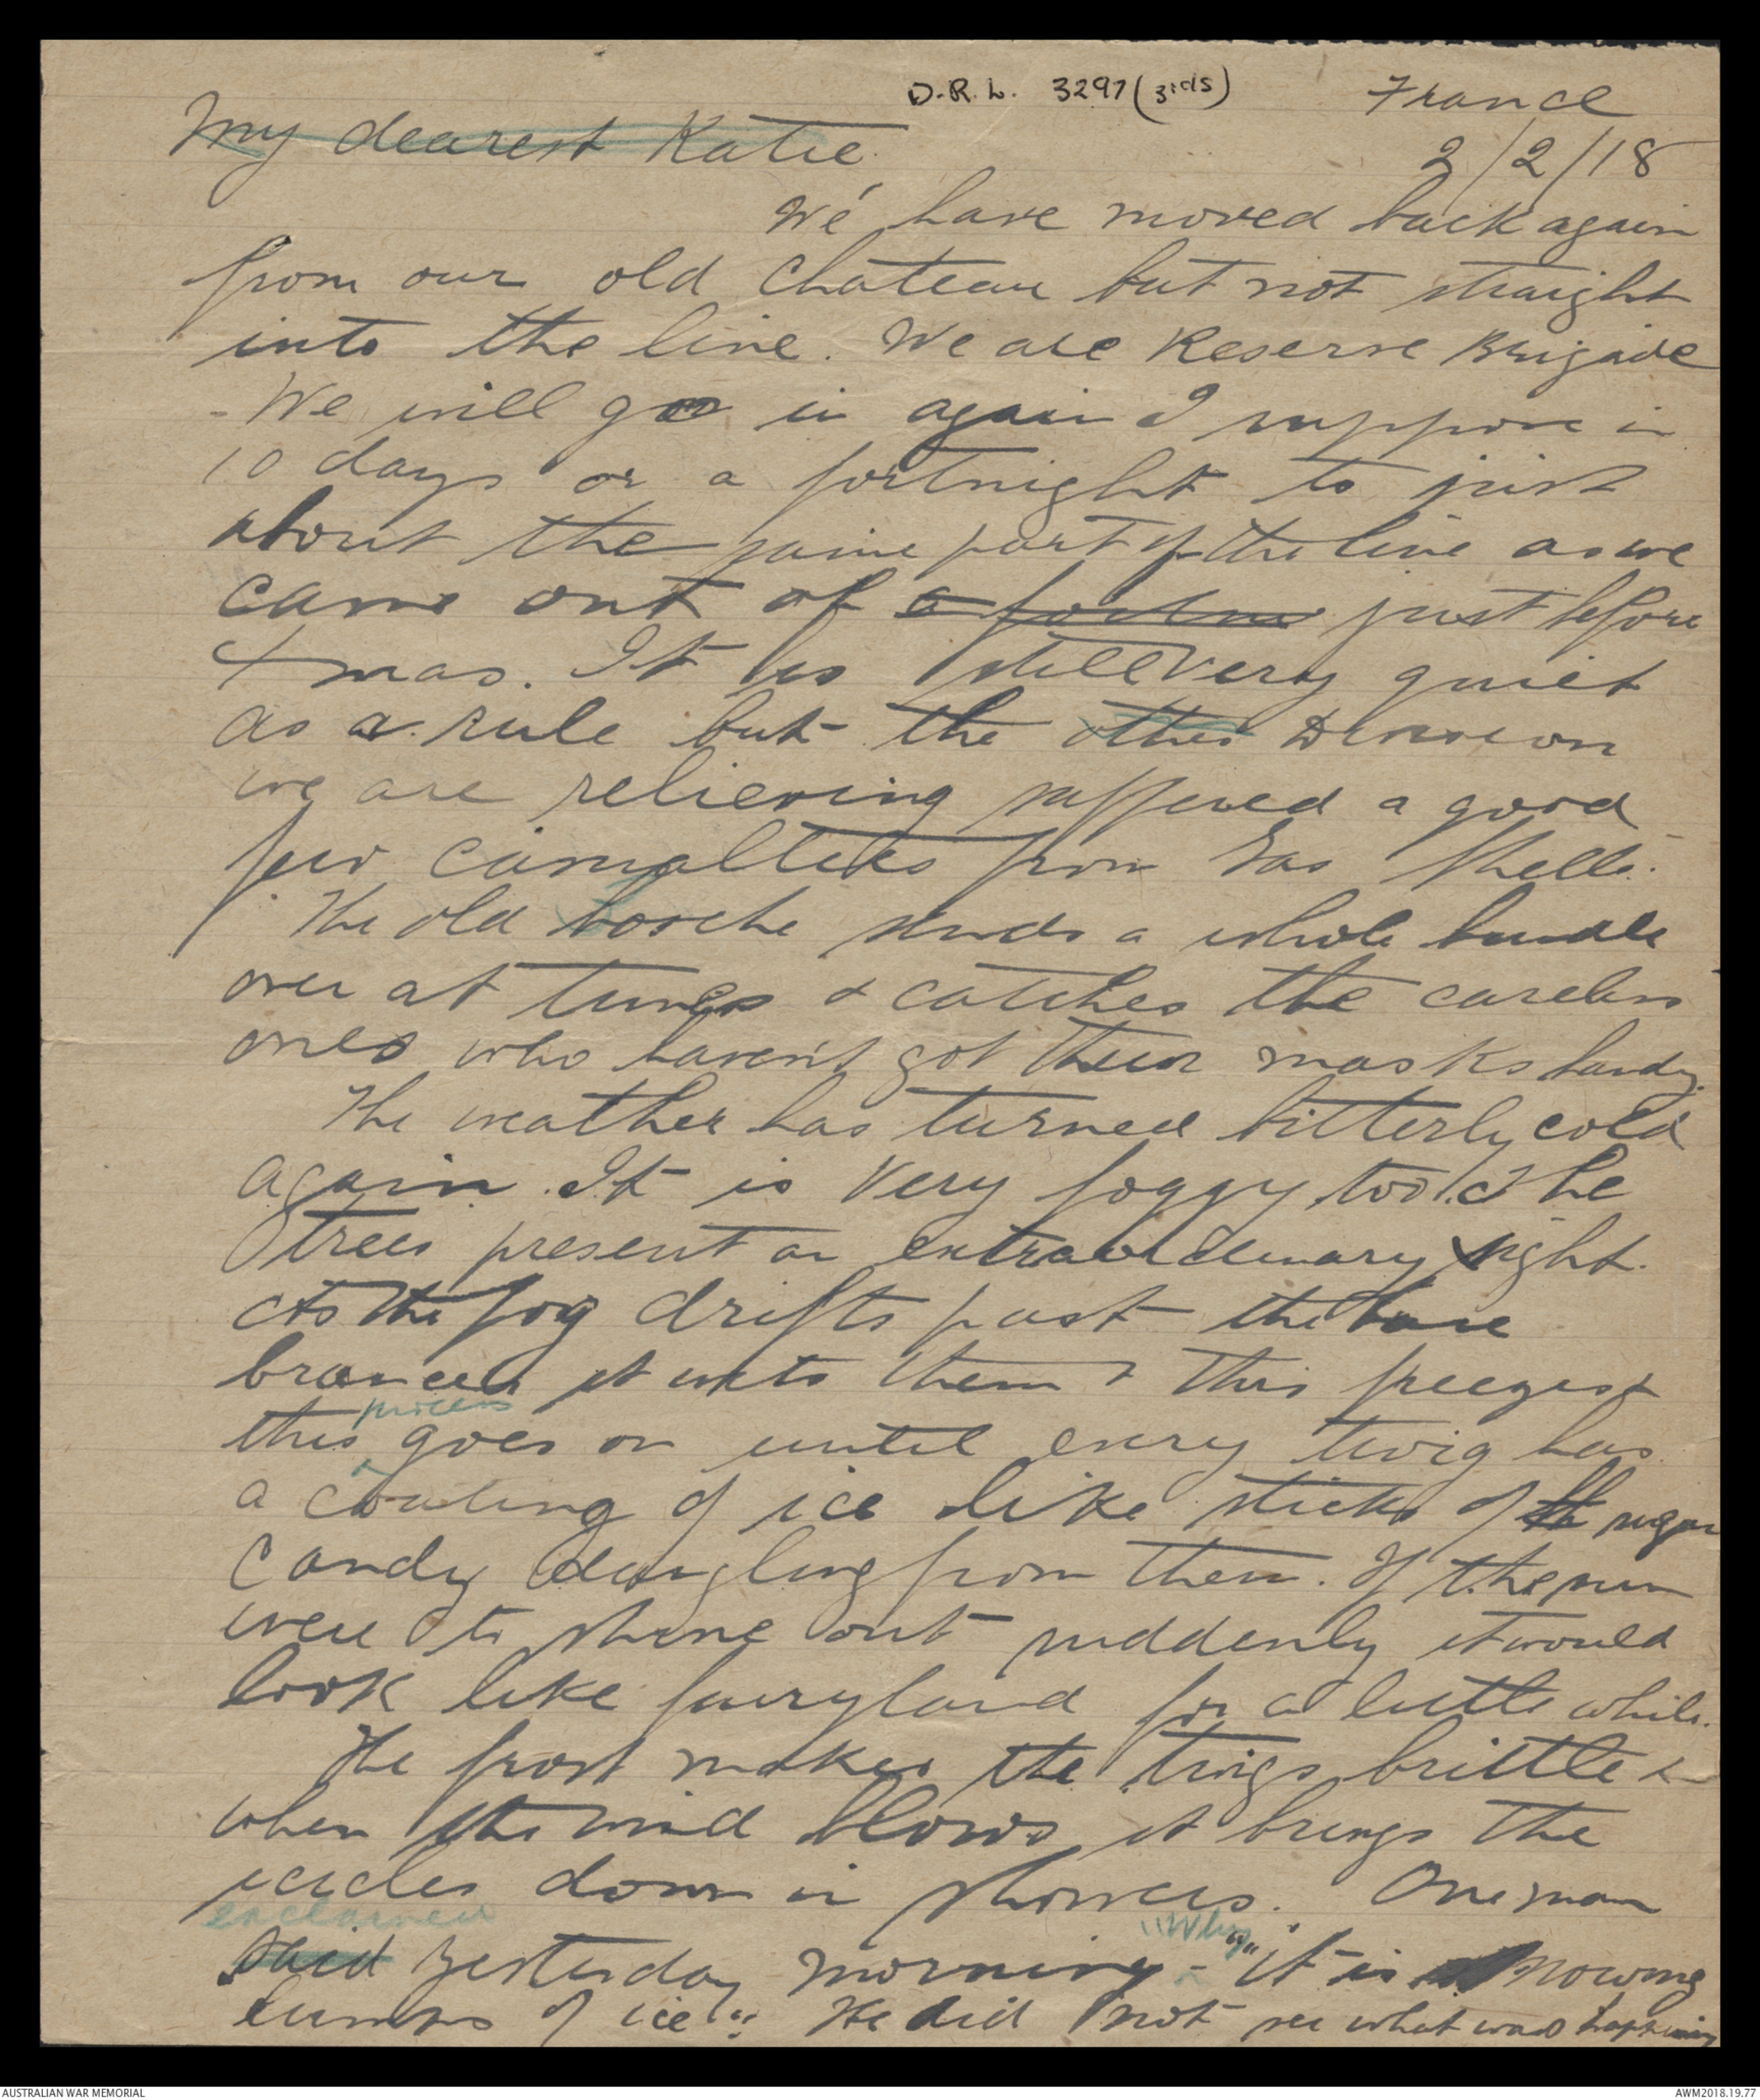 D.R.L. 3297 (3rds)
France
My dearest Katie
2/2/18
We have moved back again
from our old Chateau but not straight
into the line. We are Reserve Brigade
- We will go in again I suppose in
10 days or a fortnight to just
about the same part of the line as we
came out of just before
Xmas. It is still very quiet
as a rule but the other Division
we are relieving suffered a good
few casualties from Gas Shells.
The old bosche sends a whole bundle
over at times & catches the careless
ones who haven't got their masks handy.
The weather has turned bitterly cold
again. It is very foggy too. The
trees present an extraordinary sight.
As the fog drifts past the bare
branches it wets them & this freezes &
process
this goes on until every twig has
a coating of ice like sticks of sugar
Candy dangling from them. If the sun
were to shine out suddenly it would
look like fairyland for a little while.
The frost makes the twigs brittle &
when the wind blows it brings the
icicles down in showers. One man
exclaimed "Why
said yesterday morning - "it is snowing
lumps of ice". He did not see what was happening
AUSTRALIAN WAR MEMORIAL
AWM2018.19.77